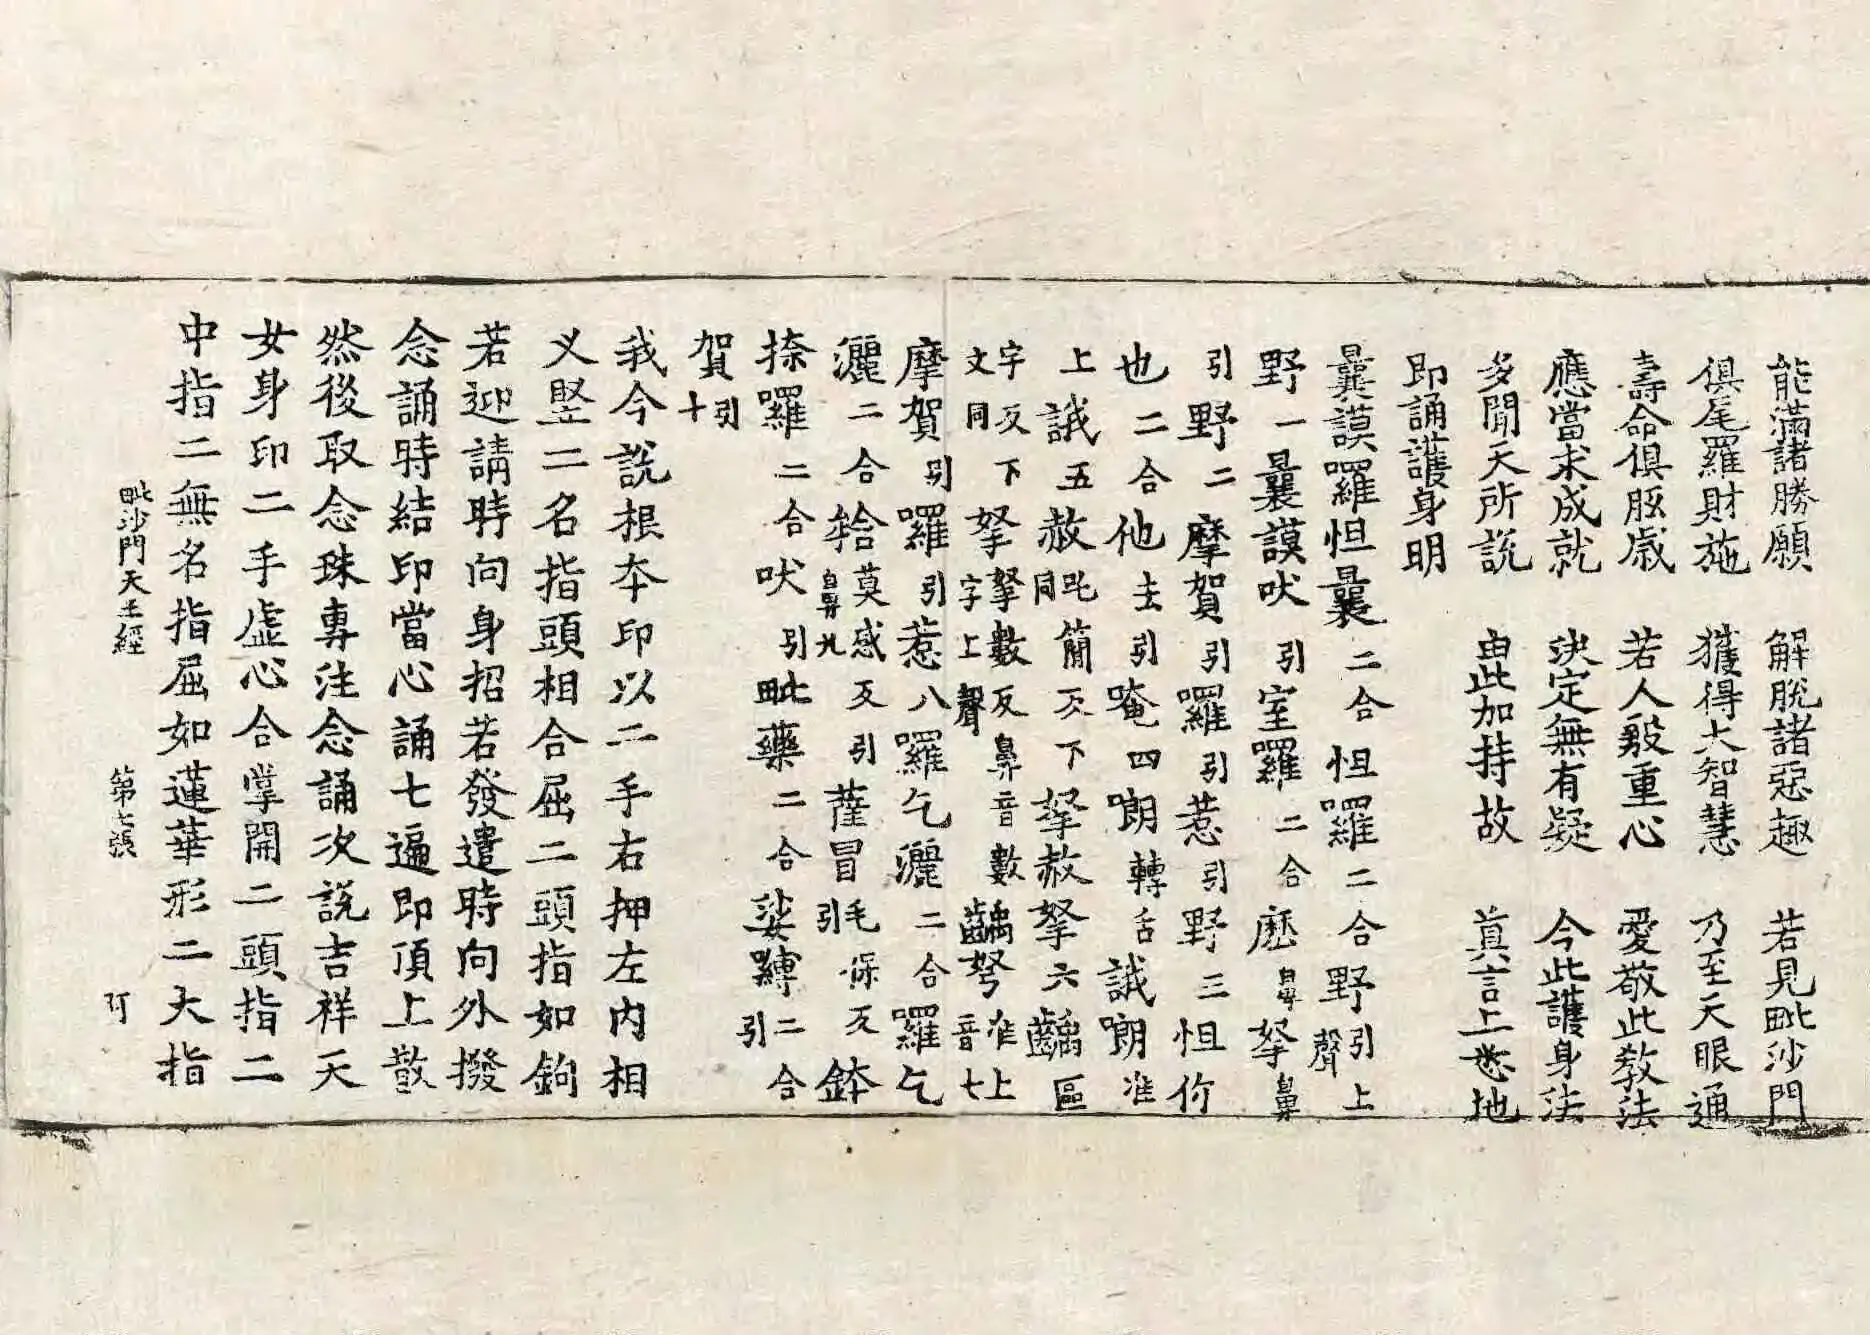 能滿諸勝願 解脫諸惡趣 若見毗沙門
俱尾羅財施 獲得大智慧 乃至天眼通
壽命俱胝歲 若人殷重心 愛敬此教法
應當求成就 決定無有疑 今此護身法
多聞天所說 由此加持故 真言上悉地
即誦護身明
曩謨囉怛曩二合怛囉二合野引上聲
野一曩謨吠引室囉二合麽鼻拏鼻
引野二摩賀引羅引惹引野三怛你
也二合他去引唵四啷轉舌誐啷准
上誐五赦同毛簡反下拏赦拏六齲區
文同字反下拏字上聲拏數反鼻音數齲弩音七准上
摩賀引囉引惹八囉乞灑二合囉乞
灑二合𤚥鼻九莫感反引薩冒引毛保反鉢
捺囉二合吠引毗藥二合娑嚩引二合
賀十引
我今說根本印以二手右押左內相
叉竪二名指頭相合屈二頭指如鉤
若迎請時向身招若發遣時向外撥
念誦時結印當心誦七遍即頂上散
然後取念珠專注念誦次說吉祥天
女身印二手虛心合掌開二頭指二
中指二無名指屈如蓮華形二大指
毗沙門天王經 第七張 阿